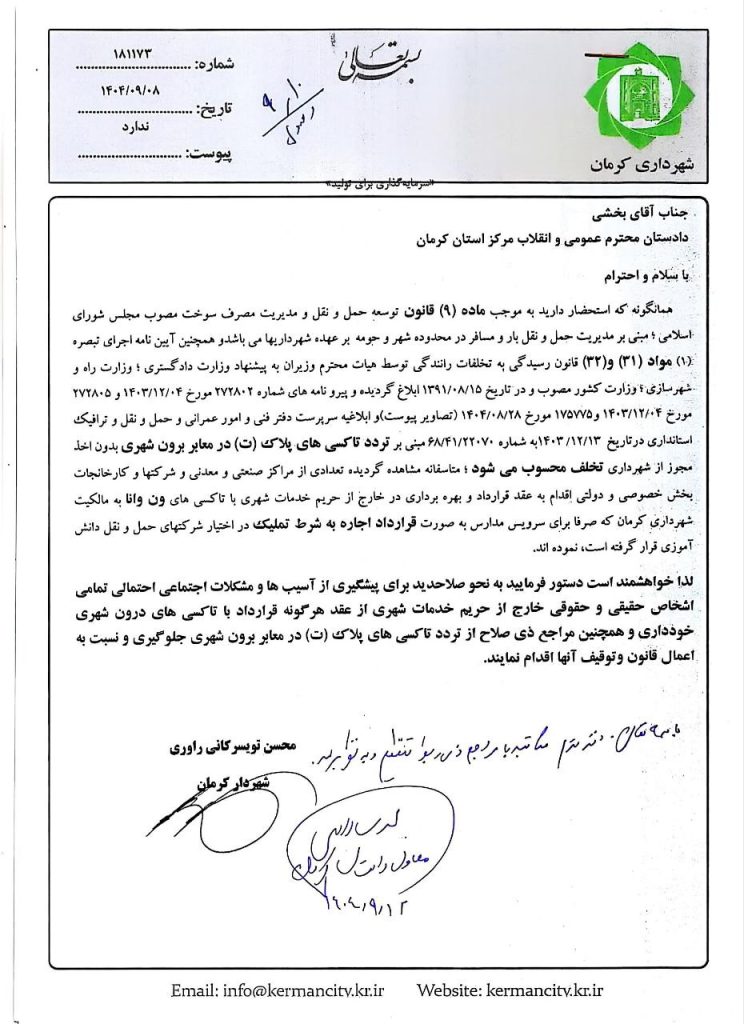 بسمه تعالی
شماره: ۱۸۱۱۷۳
تاریخ: ۱۴۰۴/۰۹/۰۸
پیوست: ندارد
۹/۱۰
شهرداری کرمان
«سرمایه‌گذاری برای تولید»
جناب آقای بخشی
دادستان محترم عمومی و انقلاب مرکز استان کرمان
با سلام و احترام
همانگونه که استحضار دارید به موجب ماده (۹) قانون توسعه حمل و نقل و مدیریت مصرف سوخت مصوب مجلس شورای
اسلامی ؛ مبنی بر مدیریت حمل و نقل بار و مسافر در محدوده شهر و حومه بر عهده شهرداریها می باشدو همچنین آیین نامه اجرای تبصره
(۱) مواد (۳۱) و(۳۲) قانون رسیدگی به تخلفات رانندگی توسط هیات محترم وزیران به پیشنهاد وزارت دادگستری ؛ وزارت راه و
شهرسازی ؛ وزارت کشور مصوب و در تاریخ ۱۳۹۱/۰۸/۱۵ ابلاغ گردیده و پیرو نامه های شماره ۲۷۲۸۰۲ مورخ ۱۴۰۳/۱۲/۰۴ و ۲۷۲۸۰۵
مورخ ۱۴۰۳/۱۲/۰۴ و۱۷۵۷۷۵ مورخ ۱۴۰۴/۰۸/۲۸ (تصاویر پیوست)و ابلاغیه سرپرست دفتر فنی و امور عمرانی و حمل و نقل و ترافیک
استانداری در تاریخ ۱۴۰۳/۱۲/۱۳ به شماره ۶۸/۴۱/۲۲۰۷۰ مبنی بر تردد تاکسی های پلاک (ت) در معابر برون شهری بدون اخذ
مجوز از شهرداری تخلف محسوب می شود ؛ متاسفانه مشاهده گردیده تعدادی از مراکز صنعتی و معدنی و شرکتها و کارخانجات
بخش خصوصی و دولتی اقدام به عقد قرارداد و بهره برداری در خارج از حریم خدمات شهری با تاکسی های ون وانا به مالکیت
شهرداری کرمان که صرفا برای سرویس مدارس به صورت قرارداد اجاره به شرط تملیک در اختیار شرکتهای حمل و نقل دانش
آموزی قرار گرفته است، نموده اند.
لذا خواهشمند است دستور فرمایید به نحو صلاحدید برای پیشگیری از آسیب ها و مشکلات اجتماعی احتمالی تمامی
اشخاص حقیقی و حقوقی خارج از حریم خدمات شهری از عقد هرگونه قرارداد با تاکسی های درون شهری
خودداری و همچنین مراجع ذی صلاح از تردد تاکسی های پلاک (ت) در معابر برون شهری جلوگیری و نسبت به
اعمال قانون وتوقیف آنها اقدام نمایند.
محسن تویسرکانی راوری
شهردار کرمان
باسمه تعالی. دفتر محترم مکاتبه با مراجع ذی ربط تنظیم
معاون دادستان کرمان
۱۴۰۴/۹/۱۲
Email: info@kermancity.kr.ir Website: kermancity.kr.ir